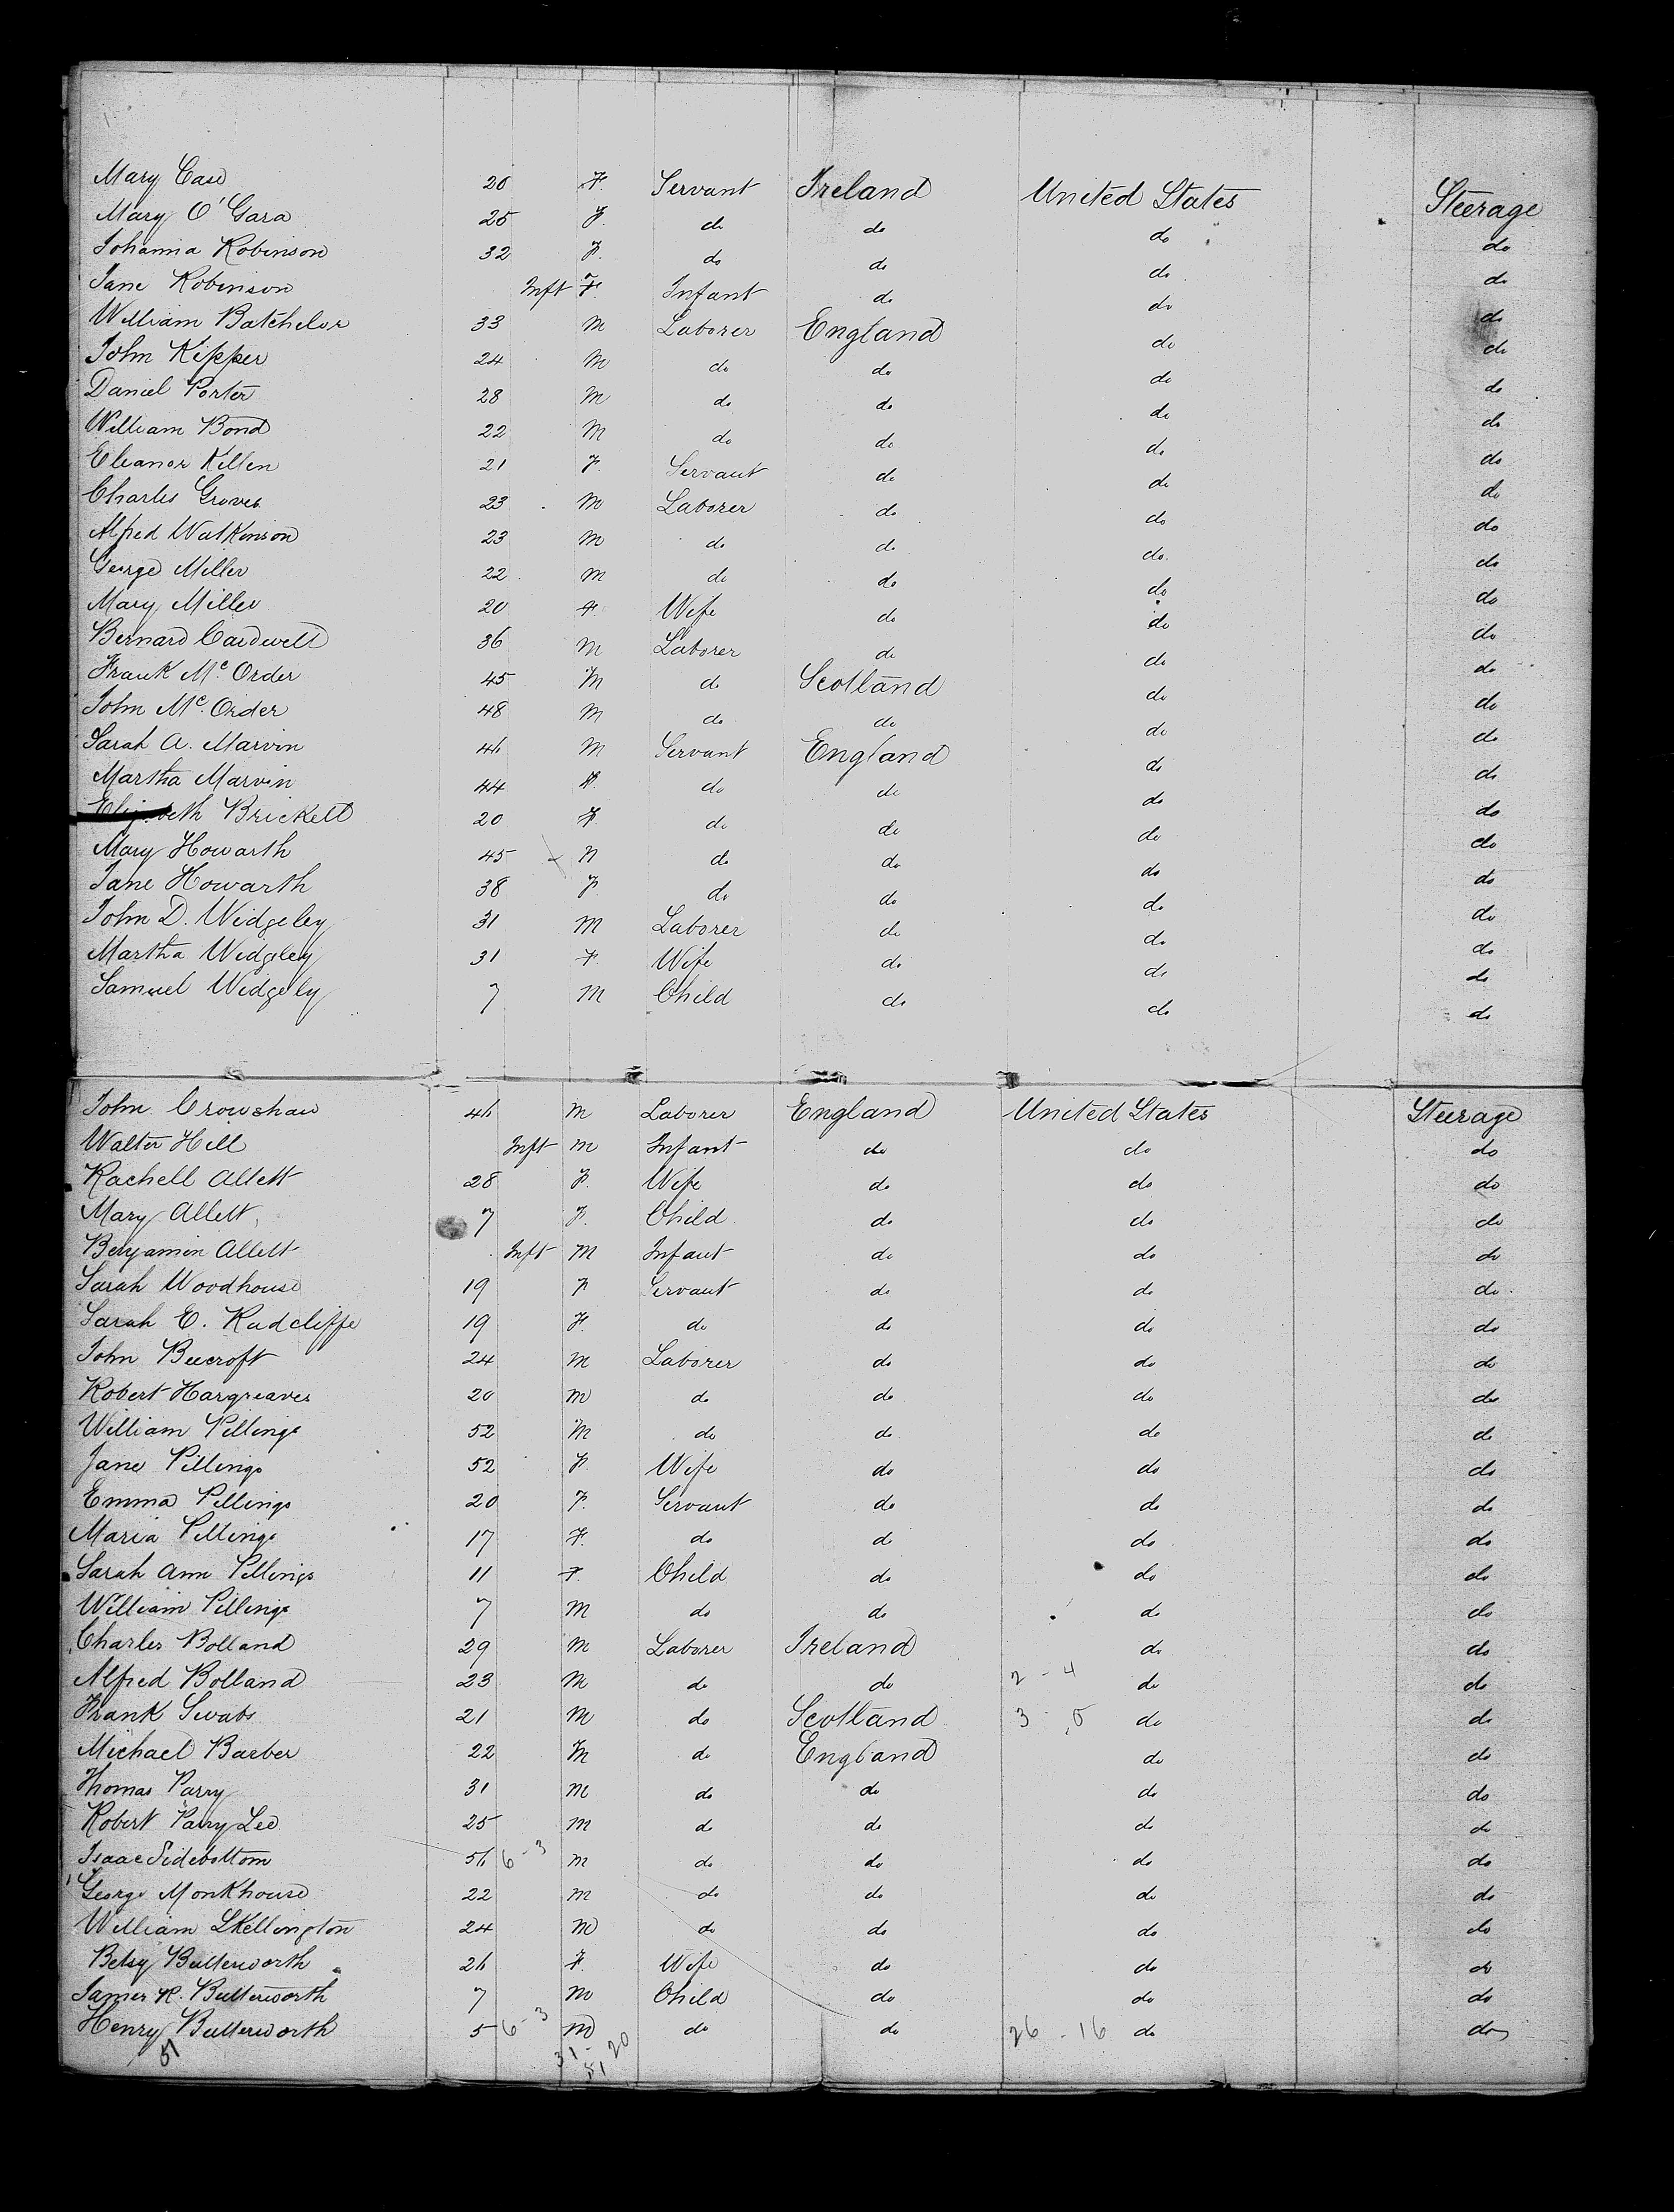 Mary Case 20 F. Servant Ireland United States Steerage
Mary O'Gara 25 F. do do do do
Johanna Robinson 32 F. do do do do
Jane Robinson Inft F. Infant do do do
William Batchelor 33 M Laborer England do do
John Kipper 24 M do do do do
Daniel Porter 28 M do do do do
William Bond 22 M do do do do
Eleanor Killen 21 F. Servant do do do
Charles Groves 23 M Laborer do do do
Alfred Watkinson 23 M do do do do
George Miller 22 M do do do do
Mary Miller 20 F. Wife do do do
Bernard Cardwell 36 M Laborer do do do
Frank Mc Order 45 M do Scotland do do
John Mc. Order 48 M do do do do
Sarah A. Marvin 46 M Servant England do do
Martha Marvin 44 F. do do do do
Elizabeth Brickell 20 F do do do do
Mary Howarth 45 do do do do
Jane Howarth 38 F. do do do do
John D. Widgeley 31 M Laborer do do do
Martha Widgeley 31 F Wife do do do
Samuel Widgely 7 M Child do do do
John Crowshaw 46 M Laborer England United States Steerage
Walter Hill Inft M Infant do do do
Rachell Allett 28 F. Wife do do do
Mary Allett 7 F. Child do do do
Benjamin Allett Inft M Infant do do do
Sarah Woodhouse 19 F Servant do do do
Sarah E. Radcliffe 19 F. do do do do
John Beecroft 24 M Laborer do do do
Robert Hargreaves 20 M do do do do
William Pillings 52 M do do do do
Jane Pillings 52 F. Wife do do do
Emma Pillings 20 F. Servant do do do
Maria Pillings 17 F. do do do do
Sarah Ann Pillings 11 F. Child do do do
William Pillings 7 M do do do do
Charles Bolland 29 M Laborer Ireland do do
Alfred Bolland 23 M do do 2 - 4 do do
Frank Swabs 21 M do Scotland 3 do do
Michael Barber 22 M do England do do
Thomas Parry 31 M do do do do
Robert Parry Lee 25 M do do do do
Isaac Sidebottom 56 6 - 3 M do do do do
George Monkhouse 22 M do do do do
William Skellington 24 M do do do do
Betsy Butterworth 26 F. Wife do do do
James R. Butterworth 7 M Child do do do
Henry Butterworth 5 6 - 3 M do do 26 - 16 do do
51 31 - 20
51